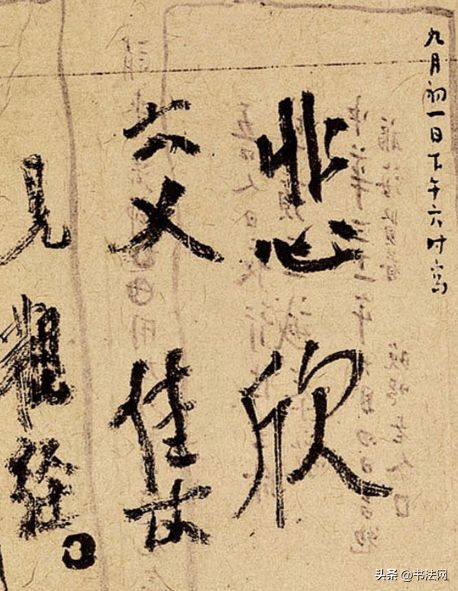 九月初一日下午六时写
悲欣
交集
見觀經。
头条 @书法网